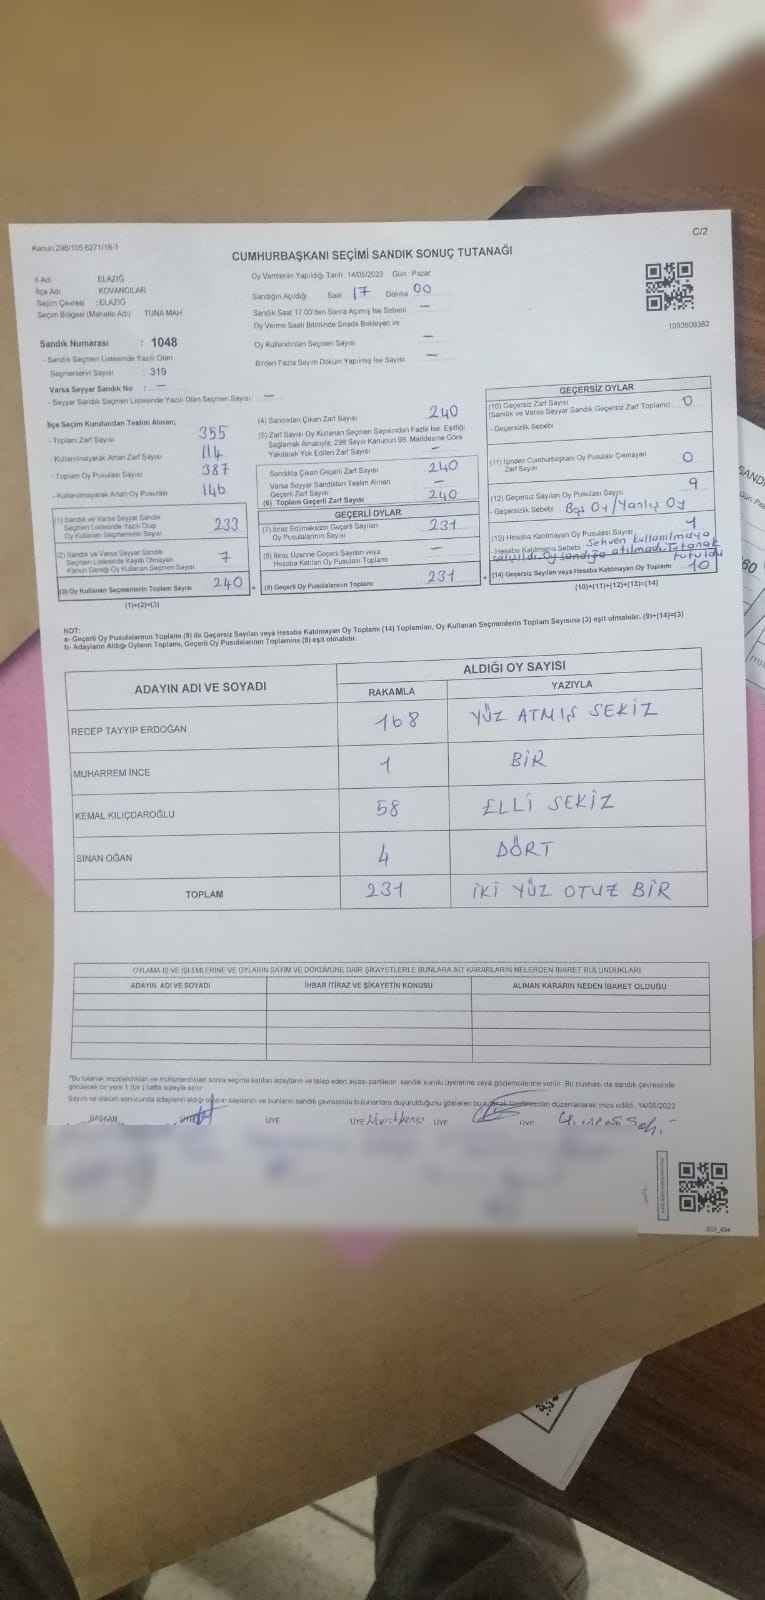 Kanun 298/105 6271/18-1
C/2
CUMHURBAŞKANI SEÇİMİ SANDIK SONUÇ TUTANAĞI
İl Adı : ELAZIĞ
İlçe Adı : KOVANCILAR
Seçim Çevresi : ELAZIĞ
Seçim Bölgesi (Mahalle Adı) TUNA MAH
Oy Vermenin Yapıldığı Tarih :14/05/2023 Gün : Pazar
Sandığın Açıldığı Saat 17 Dakika 00
Sandık Saat 17:00'den Sonra Açılmış İse Sebebi —
Oy Verme Saati Bitiminde Sırada Bekleyen ve
Oy Kullandırılan Seçmen Sayısı —
Birden Fazla Sayım Döküm Yapılmış İse Sayısı —
Sandık Numarası : 1048
- Sandık Seçmen Listesinde Yazılı Olan
Seçmenlerin Sayısı : 319
Varsa Seyyar Sandık No : —
- Seyyar Sandık Seçmen Listesinde Yazılı Olan Seçmen Sayısı —
İlçe Seçim Kurulundan Teslim Alınan;
- Toplam Zarf Sayısı 355
- Kullanılmayarak Artan Zarf Sayısı 114
- Toplam Oy Pusulası Sayısı 387
- Kullanılmayarak Artan Oy Pusulası 146
(1) Sandık ve Varsa Seyyar Sandık
Seçmen Listesinde Yazılı Olup
Oy Kullanan Seçmenlerin Sayısı 233
(2) Sandık ve Varsa Seyyar Sandık
Seçmen Listesinde Kayıtlı Olmayan
Kanun Gereği Oy Kullanan Seçmen Sayısı 7
(3) Oy Kullanan Seçmenlerin Toplam Sayısı 240
(1)+(2)=(3)
(4) Sandıktan Çıkan Zarf Sayısı 240
(5) Zarf Sayısı Oy Kullanan Seçmen Sayısından Fazla İse, Eşitliği
Sağlamak Amacıyla; 298 Sayılı Kanunun 98. Maddesine Göre
Yakılarak Yok Edilen Zarf Sayısı —
Sandıkta Çıkan Geçerli Zarf Sayısı 240
Varsa Seyyar Sandıktan Teslim Alınan
Geçerli Zarf Sayısı —
(6) Toplam Geçerli Zarf Sayısı 240
GEÇERLİ OYLAR
(7) İtiraz Edilmeksizin Geçerli Sayılan
Oy Pusulalarının Sayısı 231
(8) İtiraz Üzerine Geçerli Sayılan veya
Hesaba Katılan Oy Pusulası Toplamı —
(9) Geçerli Oy Pusulalarının Toplamı 231
GEÇERSİZ OYLAR
(10) Geçersiz Zarf Sayısı
(Sandık ve Varsa Seyyar Sandık Geçersiz Zarf Toplamı) 0
- Geçersizlik Sebebi
(11) İçinden Cumhurbaşkanı Oy Pusulası Çıkmayan
Zarf Sayısı 0
(12) Geçersiz Sayılan Oy Pusulası Sayısı 9
- Geçersizlik Sebebi Boş Oy/Yanlış Oy
(13) Hesaba Katılmayan Oy Pusulası Sayısı 1
- Hesaba Katılmama Sebebi Sehven kullanılmaya
çalışıldı. Oy sandığa atılmadı. Tutanak
tutuldu
(14) Geçersiz Sayılan veya Hesaba Katılmayan Oy Toplamı 10
(10)+(11)+(12)+(13)=(14)
NOT:
a- Geçerli Oy Pusulalarının Toplamı (9) ile Geçersiz Sayılan veya Hesaba Katılmayan Oy Toplamı (14) Toplamları, Oy Kullanan Seçmenlerin Toplam Sayısına (3) eşit olmalıdır. (9)+(14)=(3)
b- Adayların Aldığı Oyların Toplamı, Geçerli Oy Pusulalarının Toplamına (9) eşit olmalıdır.
ADAYIN ADI VE SOYADI
ALDIĞI OY SAYISI
RAKAMLA YAZIYLA
RECEP TAYYİP ERDOĞAN 168 YÜZ ATMIŞ SEKİZ
MUHARREM İNCE 1 BİR
KEMAL KILIÇDAROĞLU 58 ELLİ SEKİZ
SİNAN OĞAN 4 DÖRT
TOPLAM 231 İKİ YÜZ OTUZ BİR
OYLAMA İŞ VE İŞLEMLERİNE VE OYLARIN SAYIM VE DÖKÜMÜNE DAİR ŞİKAYETLERLE BUNLARA AİT KARARLARIN NELERDEN İBARET BULUNDUKLARI
ADAYIN ADI VE SOYADI İHBAR İTİRAZ VE ŞİKAYETİN KONUSU ALINAN KARARIN NEDEN İBARET OLDUĞU
BAŞKAN ÜYE ÜYE ÜYE ÜYE